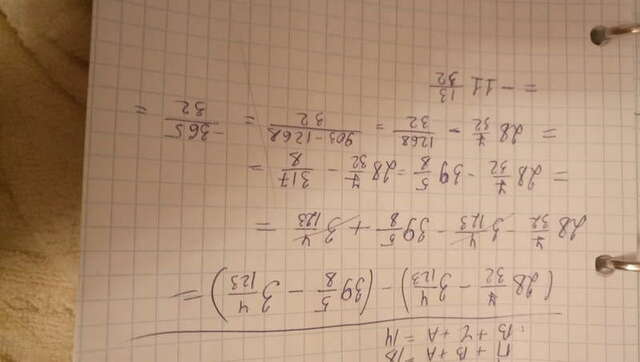 П + В + А = 18
В + Ч + А = 14
(28 7/32 - 3 4/123) - (39 5/8 - 3 4/123) =
28 7/32 - 3 4/123 - 39 5/8 + 3 4/123 =
= 28 7/32 - 39 5/8 = 28 7/32 - 317/8 =
= 28 7/32 - 1268/32 = 903-1268/32 = -365/32 =
= -11 13/32